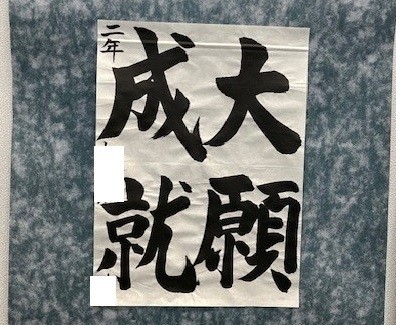 大願
成就
二年